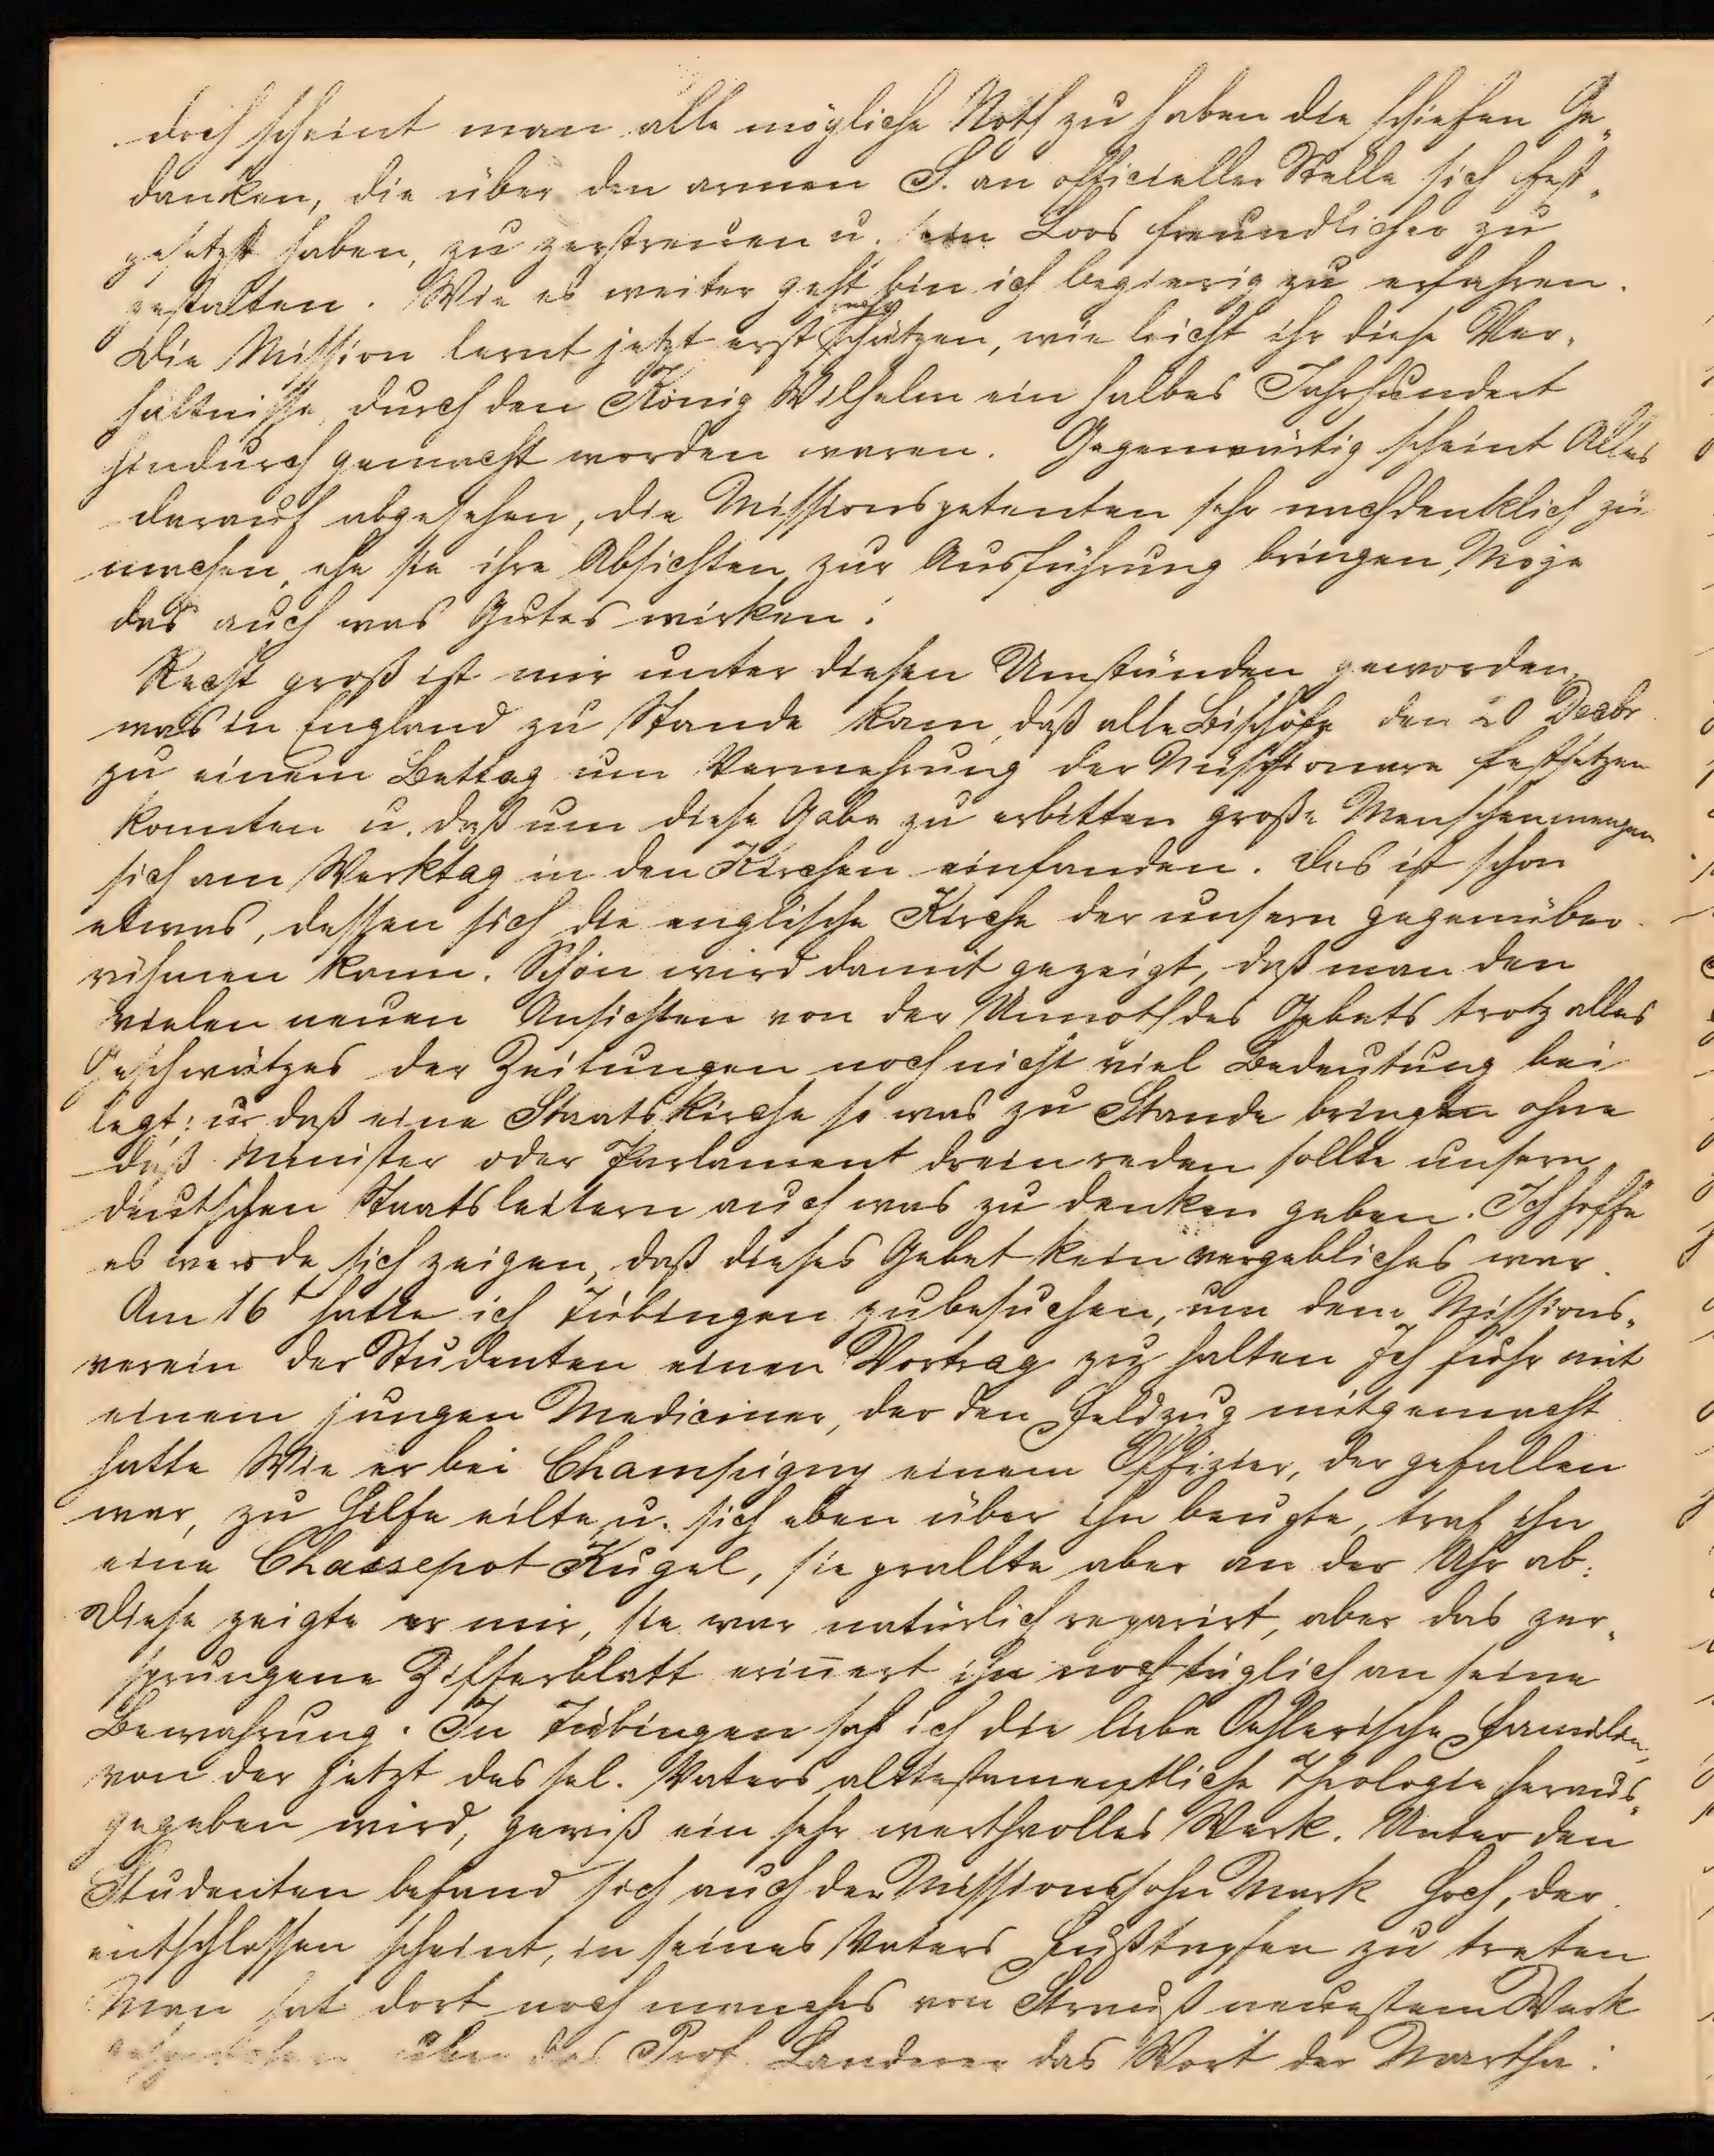 doch scheint man alle mögliche Noth zu haben die schiefen Ge„
danken, die über den armen S. an officieller Stelle sich fest„
gesetzt haben, zu zerstreuen u. sein Loos freundlicher zu
gestalten. Wie es weiter geht bin ich begierig zu erfahren.
Die Mission lernt jetzt erst schätzen, wie leicht ihr diese Ver„
hältnisse durch den König Wilhelm ein halbes Jahrhundert
hindurch gemacht worden waren. Gegenwärtig scheint Alles
darauf abgesehen, die Missionspetenten sehr nachdenklich zu
machen, ehe sie ihre Absichten zur Ausführung bringen, Möge
das auch was Gutes wirken!
Recht groß ist mir unter diesen Umständen geworden,
was in England zu Stande kam, daß alle Bischöfe den 20 Dezbr
zu einem Bettag um Vermehrung der Missionare festsetzen
konnten u. daß um diese Gabe zu erbitten große Menschenmengen
sich am Werktag in den Kirchen einfanden. Das ist schon
etwas, dessen sich die englische Kirche der unsern gegenüber
rühmen kann. Schön wird damit gezeigt, daß man den
vielen neuen Ansichten von der Unnoth des Gebets trotz alles
Geschwätzes der Zeitungen noch nicht viel Bedeutung bei
legt; u. daß eine Staatskirche so was zu Stande bringen ohne
daß Minister oder Parlament drein reden sollte unsern
deutschen Staatsleitern auch was zu denken geben. Ich hoffe
es werde sich zeigen, daß dieses Gebet kein vergebliches war.
Am 16t hatte ich Tübingen zu besuchen, um dem Missions„
verein der Studenten einen Vortrag zu halten Ich fuhr mit
einem jungen Mediciner, der den Feldzug mitgemacht
hatte Wie er bei Champigny einem Offizier, der gefallen
war, zu Hilfe eilte u. sich eben über ihn beugte, traf ihn
eine Chassepot Kugel, sie prallte aber an der Uhr ab.
Diese zeigte er mir, sie war natürlich reparirt, aber das zer„
sprungene Zifferblatt erin̅ert ihn noch täglich an seine
Bewahrung. In Tübingen sah ich die liebe Oehlerische Familie,
von der jetzt des sel. Vaters alttestamentliche Theologie heraus„
gegeben wird, gewiß ein sehr werthvolles Werk. Unter den
Studenten befand sich auch der Missionssohn Mark Hoch, der
entschlossen scheint, in seines Vaters Fußtapfen zu treten
Man hat dort noch manches von Strauß neuestem Werk
über das Prof. Landerer das Wort der Martha: